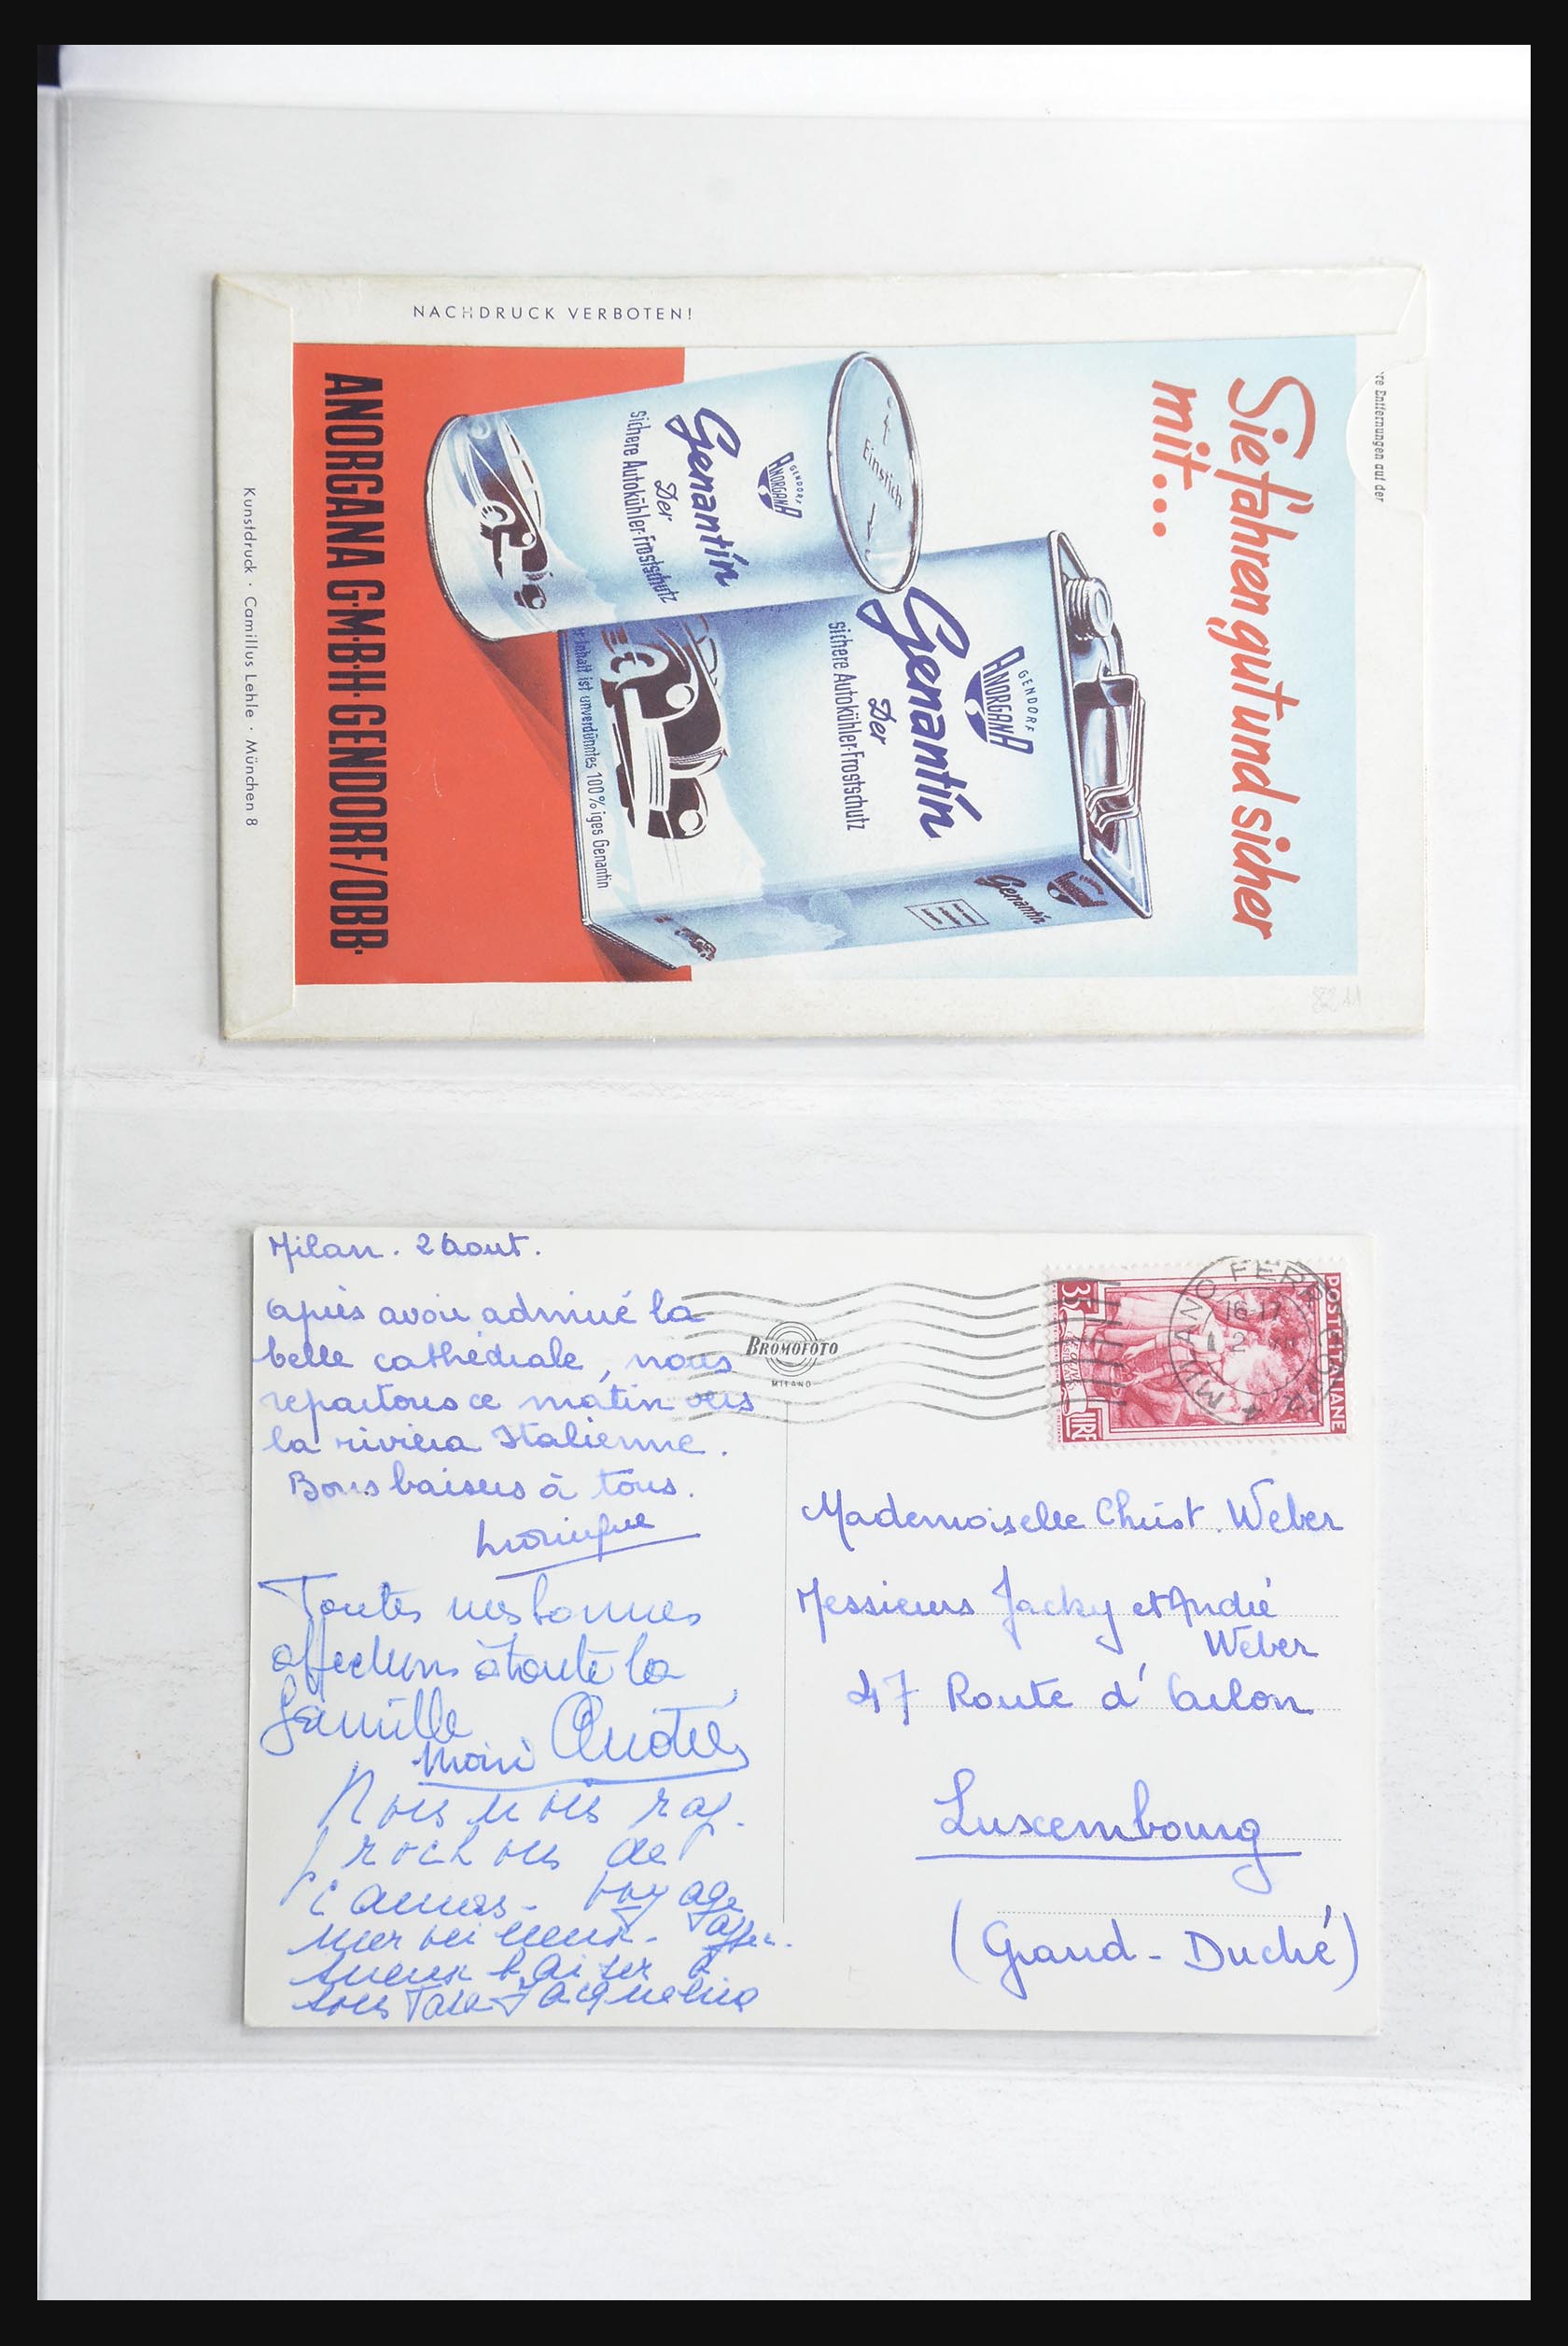 NACHDRUCK VERBOTEN!
re Entfernungen auf der
Sie fahren gut und sicher
mit...
GENDORF
ANORGANA
Genantin
Der
sichere Autokühler-Frostschutz
Einstich
GENDORF
ANORGANA
Genantin
Der
sichere Autokühler-Frostschutz
r Inhalt ist unverdünntes 100%iges Genantin
Genantin
ANORGANA G·M·B·H· GENDORF/OBB·
Kunstdruck · Camillus Lehle · München 8
Milan. 2 Aout.
Après avoir admiré la
belle cathédrale, nous
repartons ce matin vers
la riviera Italienne.
Bons baisers à tous.
Toutes mes bonnes
affections à toute la
famille
André
Nous nous rap-
prochons de
Cannes. Voyage
merveilleux. Affec-
tueux baiser à
tous Tante Jacqueline
BROMOFOTO
MILANO
POSTE ITALIANE
35
LIRE
MILANO FERR
16-17
2
Mademoiselle Christ. Weber
Messieurs Jacky et André
Weber
47 Route d'Arlon
Luxembourg
(Grand-Duché)